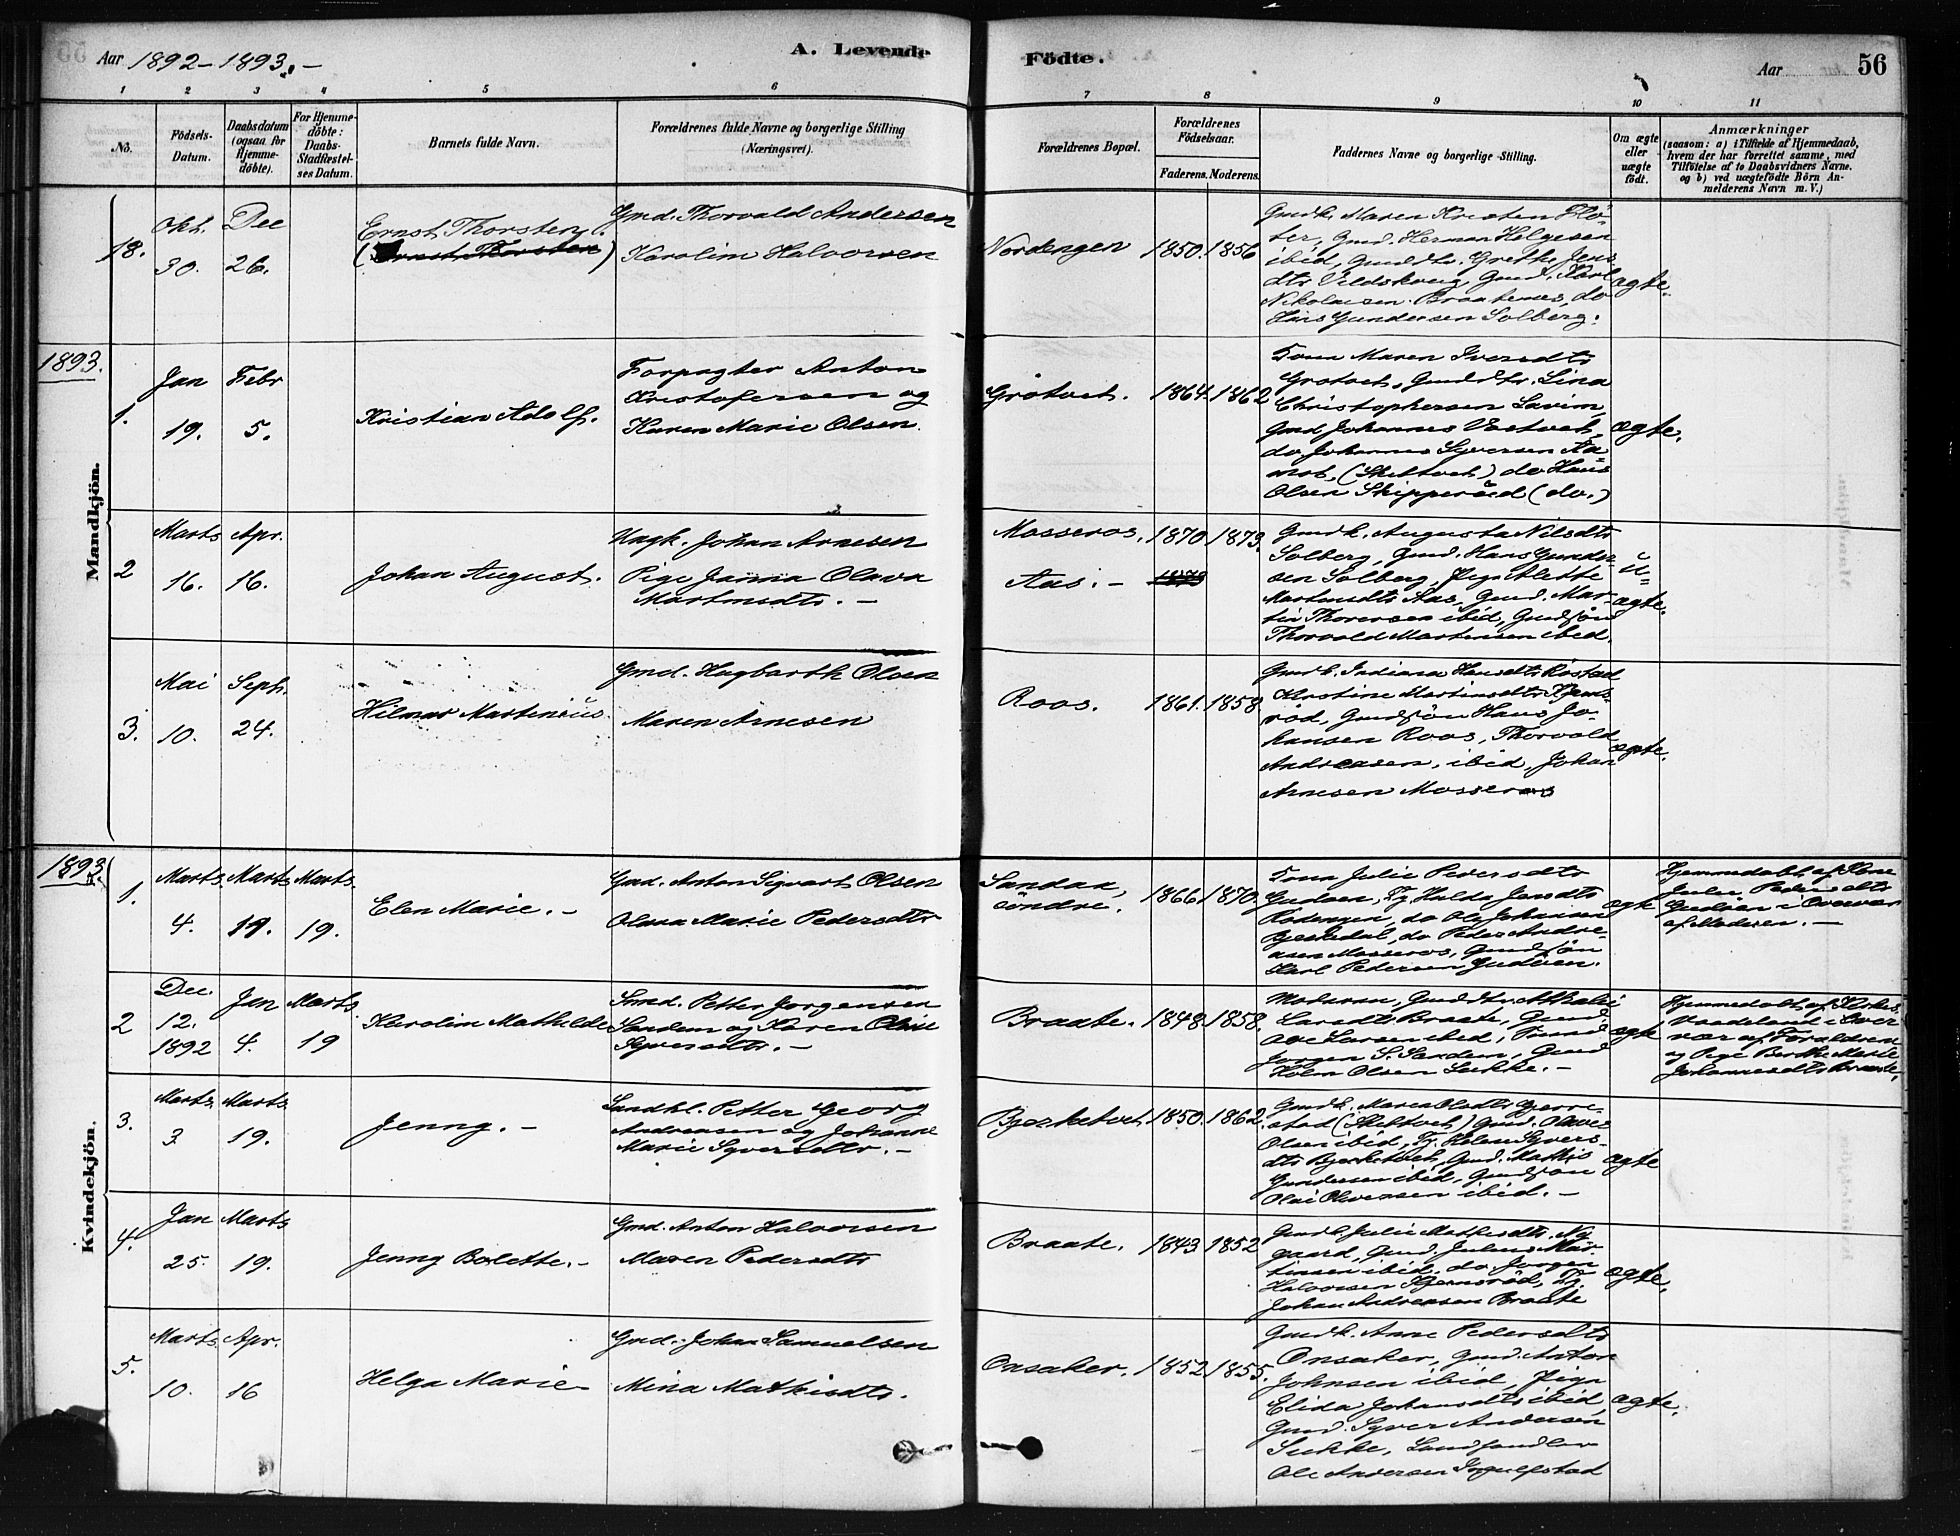 Aar 1892-1893.-
A. Levende
Födte.
Aar
56
1
2
3
4
5
6
7
8
9
10
11
No.
Födsels-
Datum.
Daabsdatum
(ogsaa for
Hjemme-
döbte).
For Hjemme-
döbte:
Daabs-
Stadfæstel-
ses Datum.
Barnets fulde Navn.
Forældrenes fulde Navne og borgerlige Stilling
(Næringsvei).
Forældrenes Bopæl.
Forældrenes
Födselsaar.
Faderens.
Moderens.
Faddernes Navne og borgerlige Stilling.
Om ægte
eller
uægte
födt.
Anmærkninger
(saasom: a) i Tilfælde af Hjemmedaab,
hvem der har forrettet samme, med
Tilföielse af to Daabsvidners Navne,
og b) ved uægtefödte Börn An-
melderens Navn m. V.)
Mandkjön.
18.
Okt.
30.
Dec
26.
Ernst Thorsten.
(Ernst Thorsten)
Gmd. Thorvald Andersen
Karolin Halvorsen
Nordengen
1850.
1856
Gmdk. Maren Kristen Flö-
ter, Gmd. Herman Helgesen
ibid, Gmddtr. Grethe Jens-
dtr Vildskoug, Gmd. Karl
Nikolaisen Braatenes, do
Hans Gundersen Solberg.
ægte.
1893.
1.
Jan
19.
Febr
5.
Kristian Adolf.
Forpagter Anton
Kristofersen og
Karen Marie Olsen.
Grötvet.
1864.
1862
Kona Maren Iversdtr
Grotvet, Gmddtr. Lina
Christophersen
Gmd Johannes
do Johannes Syversen Aa-
mot, (Skiltvet) do Hans
Olsen Skipperöd (do.)
ægte.
2
Marts
16.
Apr.
16.
Johan August.
Ungk. Johan Arnesen
Pige Janna Olava
Martinsdtr. -
Mosseros.
Aas. -
1870
1873.
1873
Gmdk. Augusta Nilsdtr
Solberg, Gmd. Hans Gunder-
sen Solberg, Pige Alette
Martinsdtr Aas, Gmd. Mar-
tin Thoresen ibid, Gmdsön
Thorvald Martinsen ibid.
u-
ægte.
3.
Mai
10.
Sept.
24.
Hilmar Martinius
Gmd. Hagbarth Olsen
Maren Arnesen
Roos.
1861.
1858.
Gmdk. Indiana Hansdtr Röstad
Kristine Martinsdtr Kjens-
röd, Gmdsön Hans Jo-
hansen Roos, Thorvald
Andreasen, ibid, Johan
Arnesen Mosseros
ægte.
1893.
Kvindekjön.
1.
Marts
4.
Marts
11.
Marts
19.
Elen Marie. -
Gmd. Anton Sigvart Olsen
Olava Marie Pedersdtr
Sandaa,
söndre.
1866.
1870.
Kona Julie Pedersdtr
Gudöen, Tj. Hulda Jensdtr
Rödengen, do Ole Johansen
Bjerkedal, do Peder Andre-
asen Mosseros, Gmdsön
Karl Pedersen Gudöen.
ægte
Hjemmedöbt af Kone
Julie Pedersdtr
Gudöen i Overvær
af Moderen. -
2
Dec.
12.
1892
Jan
4.
Marts
19
Karolin Mathilde
Smed. Petter Jorgensen
Sandem og Karen Oline
Syversdtr. -
Braate.
1848.
1858.
Moderen, Gmddtr Athalie
Larsdtr Braate, Gmd.
Ole Larsen ibid, Smed
Jorgen S. Sandem, Gmd
Holm Olsen Sukke. -
ægte
Hjemmedöbt af Kirkes.
Vaadeland i Over
vær af Forældrene
og Pige Berthe Marie
Johannesdtr Braate.
3.
Marts
3
Marts
19.
Jenny. -
Landhl. Petter Georg
Andreasen og Johanne
Marie Syversdtr. -
Bjerketvet
1850.
1862.
Gmdk. Maren Olsdtr Gjerre-
stad (Skiltvet) Gmd. Olaves
Olsen ibid, Tj. Helene Syvers-
dtr Bjerketvet, Gmd. Mathis
Gundersen ibid, Gmdsön
Olai Olivesen ibid. -
ægte
4.
Jan
25.
Marts
19.
Jenny Bolette. -
Gmd. Anton Halvorsen
Maren Pedersdtr
Braate.
1843
1852
Gmdk. Julie Mathisdtr. Ny
gaard, Gmd. Julius Mar-
tinsen ibid, do Jorgen
Halvorsen Kjensröd, Tj.
Johan Andreasen Braate
ægte.
5.
Marts
10.
Apr.
16
Helga Marie
Gmd. Johan Samuelsen
Mina Mathisdtr.
Onsaker.
1852
1855.
Gmdk. Anne Pedersdtr
Onsaker, Gmd. Anton
Johnsen ibid, Pige
Elida Johansdtr ibid,
Gmd. Syver Andersen
Sukke, Landhandler
Ole Andersen Ingulfstad
ægte.